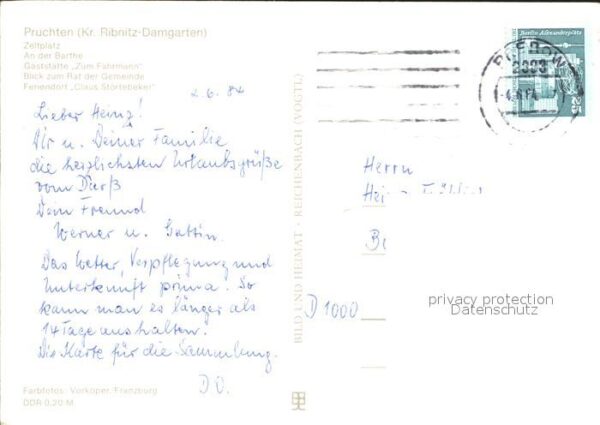 Pruchten (Kr. Ribnitz-Damgarten)
Zeltplatz
An der Barthe
Gaststätte „Zum Fährmann"
Blick zum Rat der Gemeinde
Feriendorf „Claus Störtebeker"
2.6.84
Lieber Heinz!
Dir u. Deiner Familie
die herzlichsten Urlaubsgrüße
vom Darß
Dein Freund
Werner u. Gattin.
Das Wetter, Verpflegung und
Unterkunft prima. So
kann man es länger als
14 Tage aushalten.
Die Karte für die Sammlung.
D.O.
Farbfotos: Vorköper, Franzburg
DDR 0,20 M
BILD UND HEIMAT · REICHENBACH (VOGTL)
Berlin, Alexanderplatz
25
PREROW
2383
Herrn
Hei
Bi
D 1000
privacy protection
Datenschutz